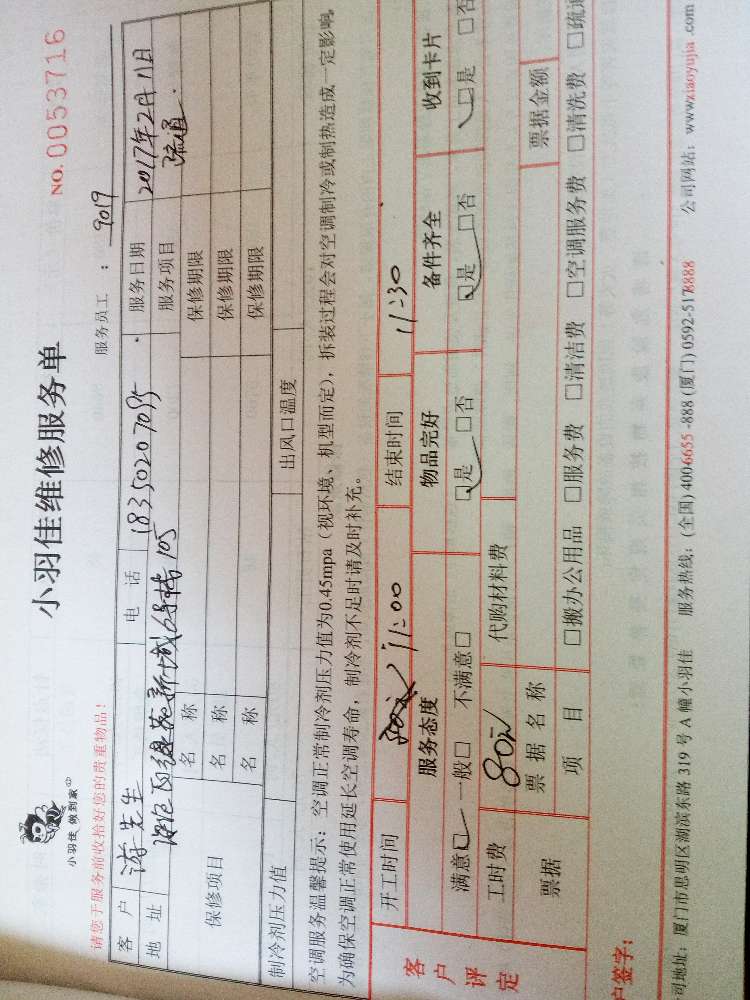 小羽佳 做到家
小羽佳维修服务单
NO. 0053716
请您于服务前收拾好您的贵重物品!
服务员工 : 9019
客 户 游先生 电 话 18350207095 服务日期 2017年2月11日
地 址 新城 105 服务项目 疏通
保修项目
名 称 保修期限
名 称 保修期限
名 称 保修期限
制冷剂压力值 出风口温度
空调服务温馨提示: 空调正常制冷剂压力值为0.45mpa(视环境、机型而定),拆装过程会对空调制冷或制热造成一定影响。
为确保空调正常使用延长空调寿命,制冷剂不足时请及时补充。
客户评定
开工时间 11:00 结束时间 11:30
服务态度 物品完好 备件齐全 收到卡片
满意☑ 一般□ 不满意□ ☑是 □否 ☑是 □否 ☑是 □否
工时费 80元 代购材料费
票据 票 据 名 称 票据金额
项 目 □搬办公用品 □服务费 □清洁费 □空调服务费 □清洗费 □疏通
户签字:
司地址: 厦门市思明区湖滨东路 319 号 A 幢小羽佳 服务热线: (全国) 4006655-888 (厦门) 0592-5178888 公司网站: www.xiaoyujia.com